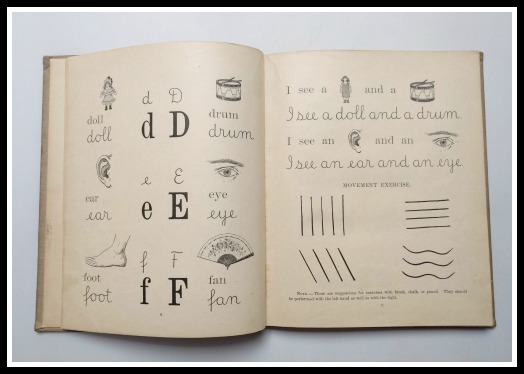 d D
doll drum
d D
doll drum
e E
ear eye
e E
ear eye
f F
foot fan
f F
foot fan
I see a and a
I see a doll and a drum.
I see an and an
I see an ear and an eye.
MOVEMENT EXERCISE.
NOTE.—These are suggestions for exercises with brush, chalk, or pencil. They should
be performed with the left hand as well as with the right.